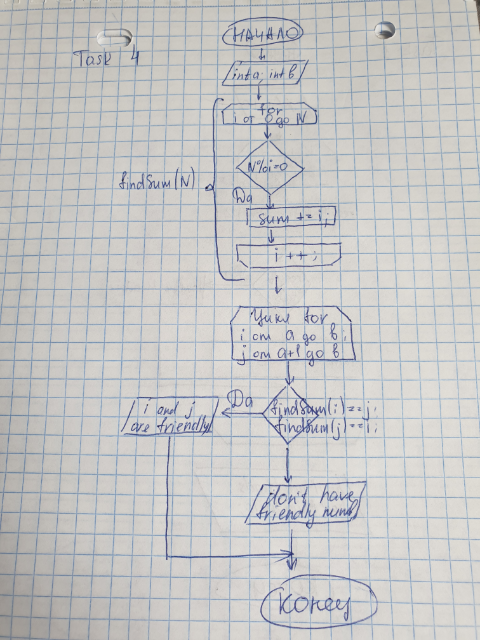 НАЧАЛО
Task 4
int a; int b
for
i от 0 до N
N%i=0
findSum(N)
Да
sum += i;
i ++;
Цикл for
i от a до b;
j от a+1 до b
Да
findSum(i)==j;
findSum(j)==i;
i and j
are friendly
don't have
friendly
Конец